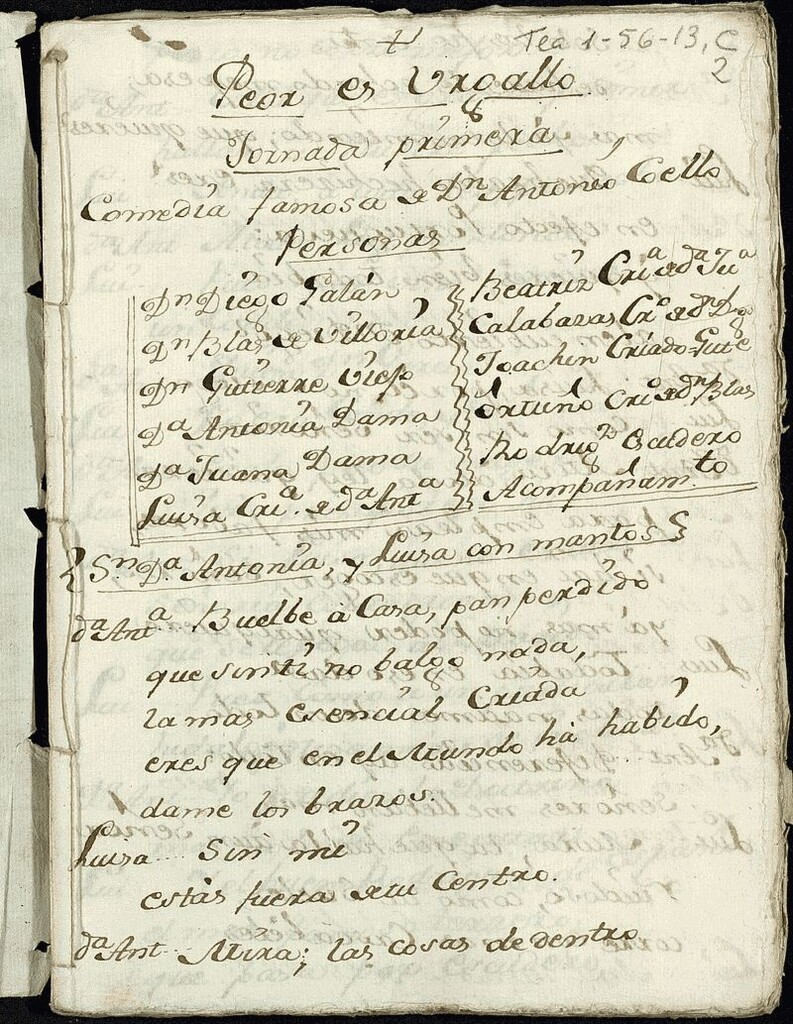 Tea 1-56-13, C
2
Peor es Urgallo
Jornada primera
Comedia famosa de Dn Antonio Coello
Personas
Dn Diego Galán
Dn Blas de Vittoria
Dn Gutierre Viejo
Da Antonia Dama
Da Juana Dama
Luisa Cria. de da Anta
Beatriz Cria de da Jua
Calabazas Cro de dn Dgo
Joachin Criado Gute
Ortuño Cro de dn Blas
Rodrigo Escudero
Acompañamto
Sn Da. Antonia, y Luisa con mantos
da Anta Buelbe à Casa, pan perdido
que sin tì no balgo nada,
la mas esencial Criada
eres que en el Mundo hà habido,
dame los brazos.
Luisa Sin mì
estàs fuera de tu Centro.
da Ant Mira; las cosas de dentro